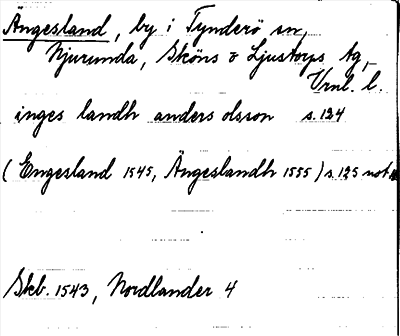 Ängesland, by i Tynderö sn,
Njurunda, Sköns & Ljustorps tg,
Vrnl. l.
inges landh anders olsson s. 124
(Engesland 1545, Ängeslandh 1555) s. 125 not.
Skb. 1543, Nordlander 4